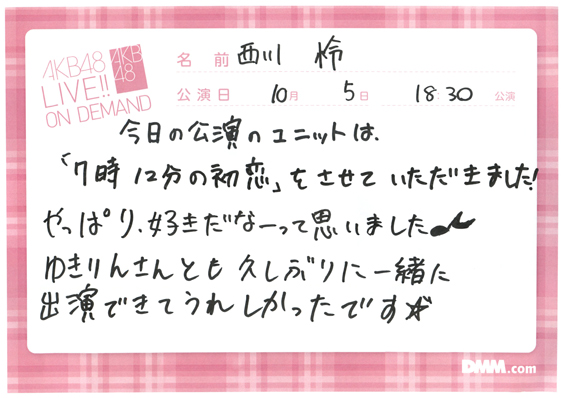 AKB48
LIVE!!
ON DEMAND
AKB
48
名前 西川 怜
公演日 10月 5日 18:30 公演
今日の公演のユニットは、
「7時12分の初恋」をさせていただきました!
やっぱり、好きだなーって思いました♪
ゆきりんさんとも久しぶりに一緒に
出演できてうれしかったです☆
DMM.com